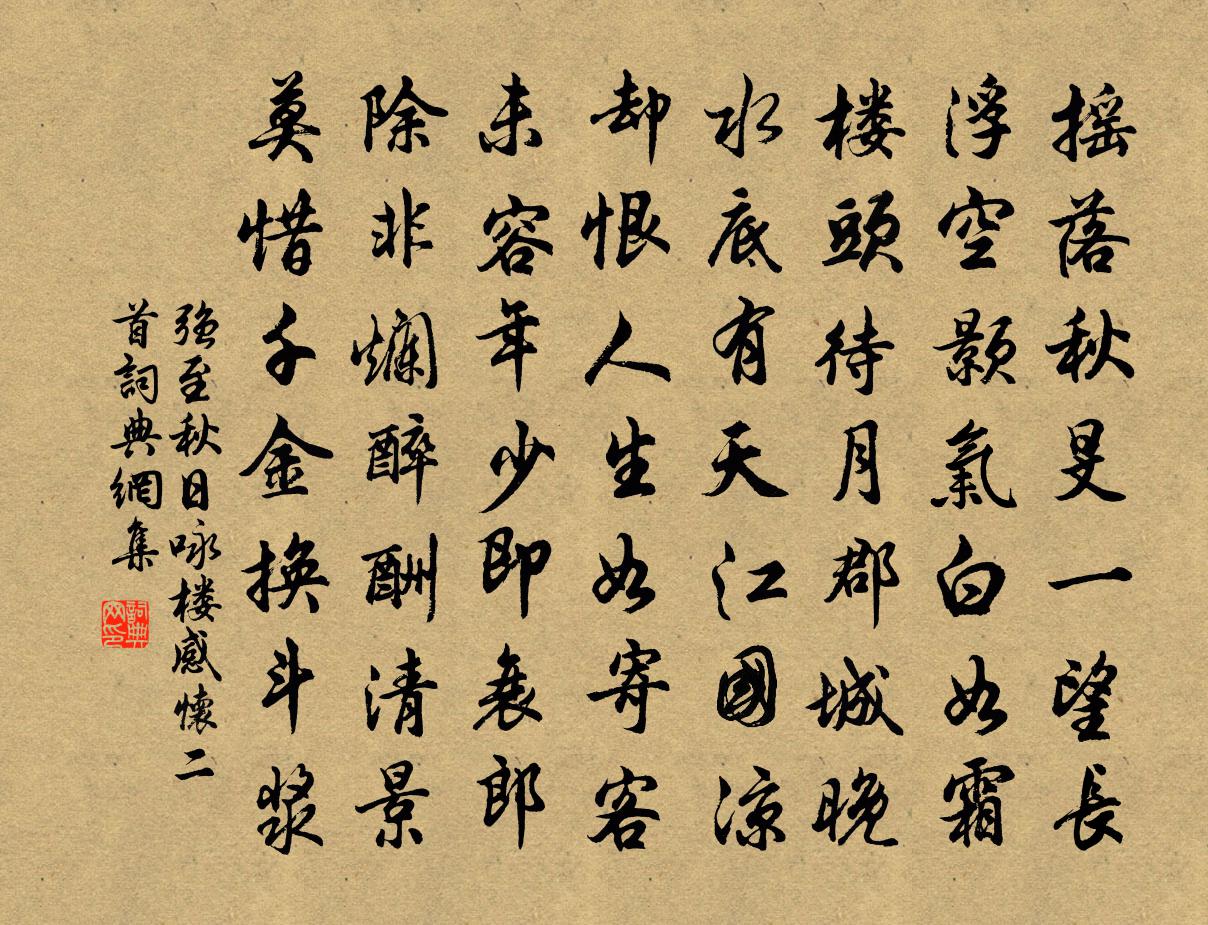 摇落秋旻一望長
浮空颢氣白如霜
楼頭待月郡城晚
水底有天江國涼
却恨人生如寄客
未容年少即衰郎
除非爛醉酬清景
莫惜千金換斗漿
強至秋日咏楼感懷二
首詞典網集
詞典
网印